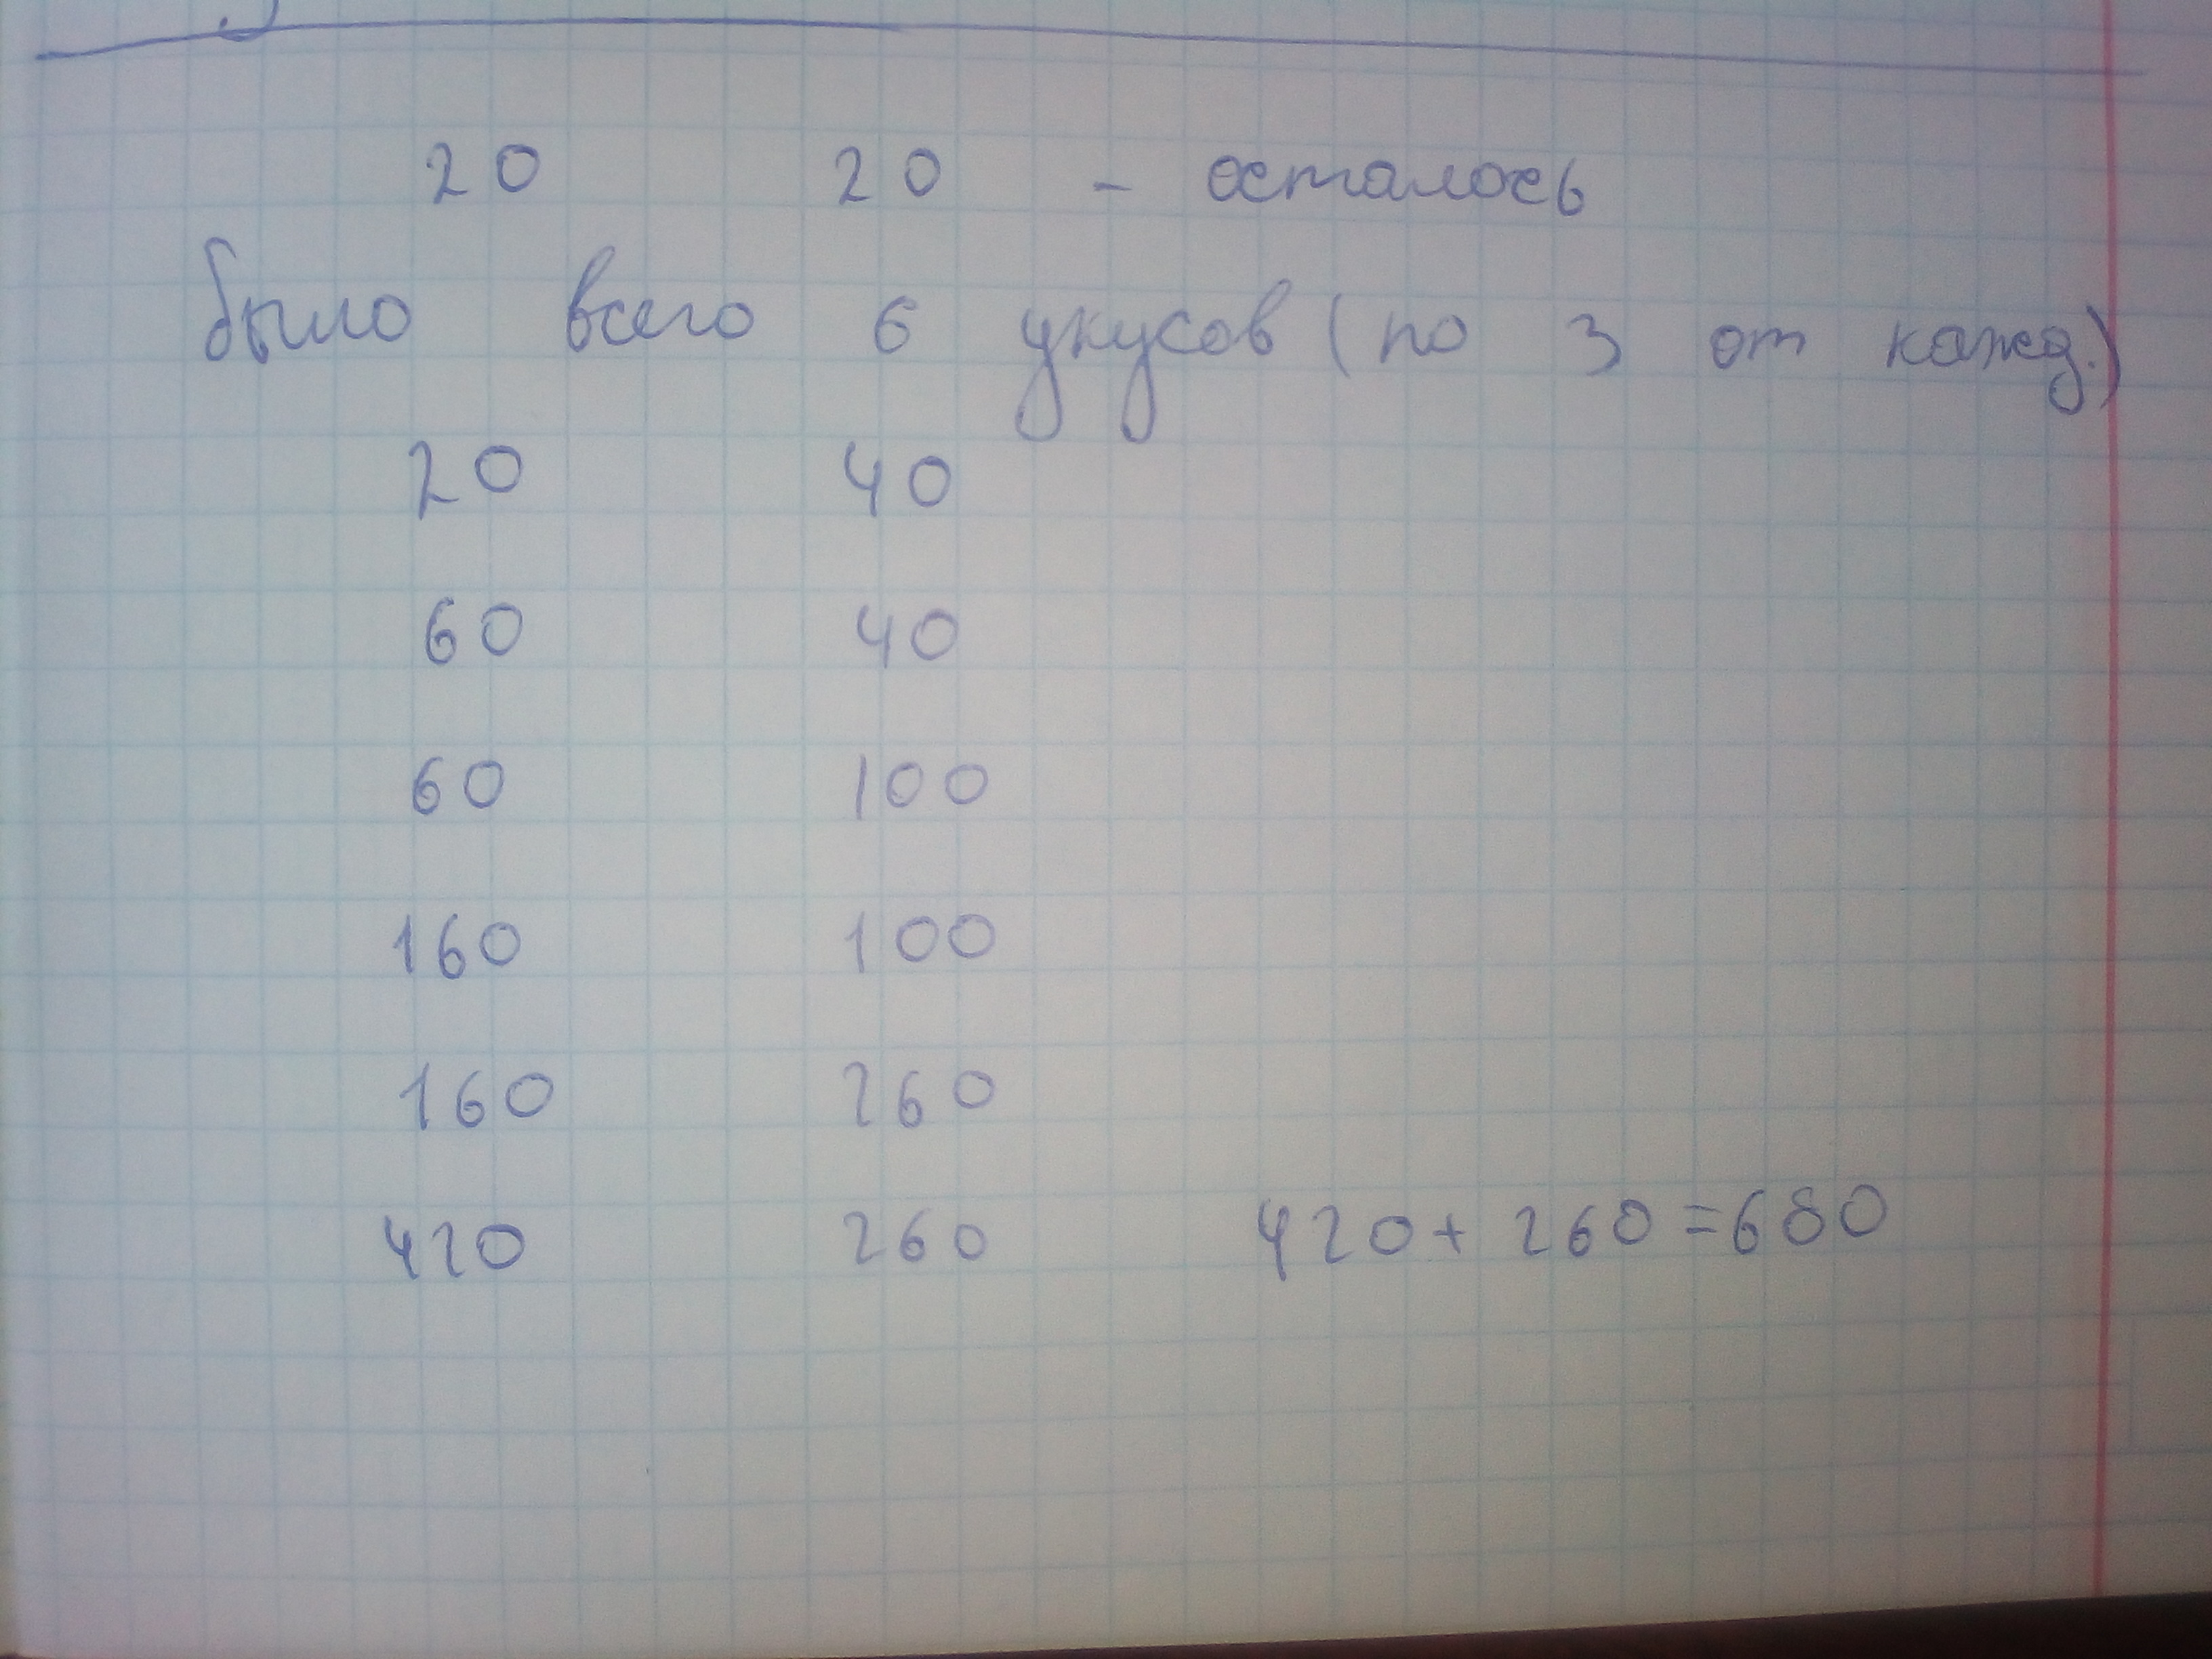 20 20 - осталось
было всего 6 укусов (по 3 от кажд.)
20 40
60 40
60 100
160 100
160 260
420 260 420 + 260 = 680